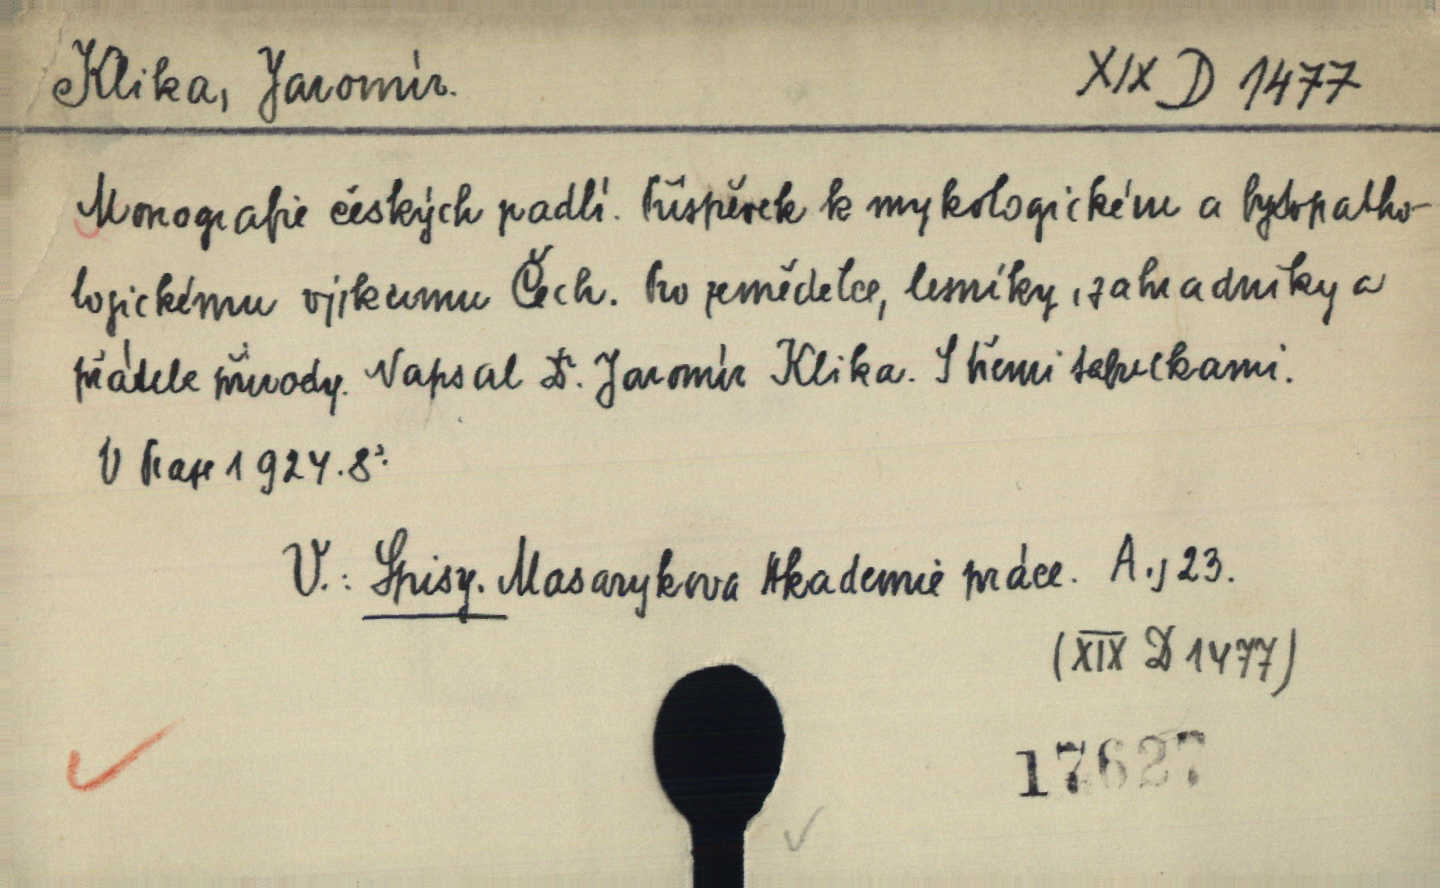 Klika, Jaromír.
XIX D 1477
Monografie českých padlí. Příspěvek k mykologickému a fytopatho-
logickému výzkumu Čech. Pro zemědělce, lesníky, zahradníky a
přátele přírody. Napsal Dr. Jaromír Klika. S třemi tabulkami.
V Praze 1924. 8°.
V.: Spisy. Masarykova Akademie práce. A., 23.
(XIX D 1477)
17627